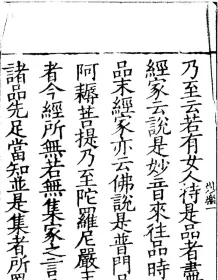 乃至云若有女人持是品者盡
經家云說是妙音來往品時
品末經家亦云佛說是普門品
阿耨菩提乃至陀羅尼嚴王
者今經所無若無集家之言
諸品先足當知並是集者所置